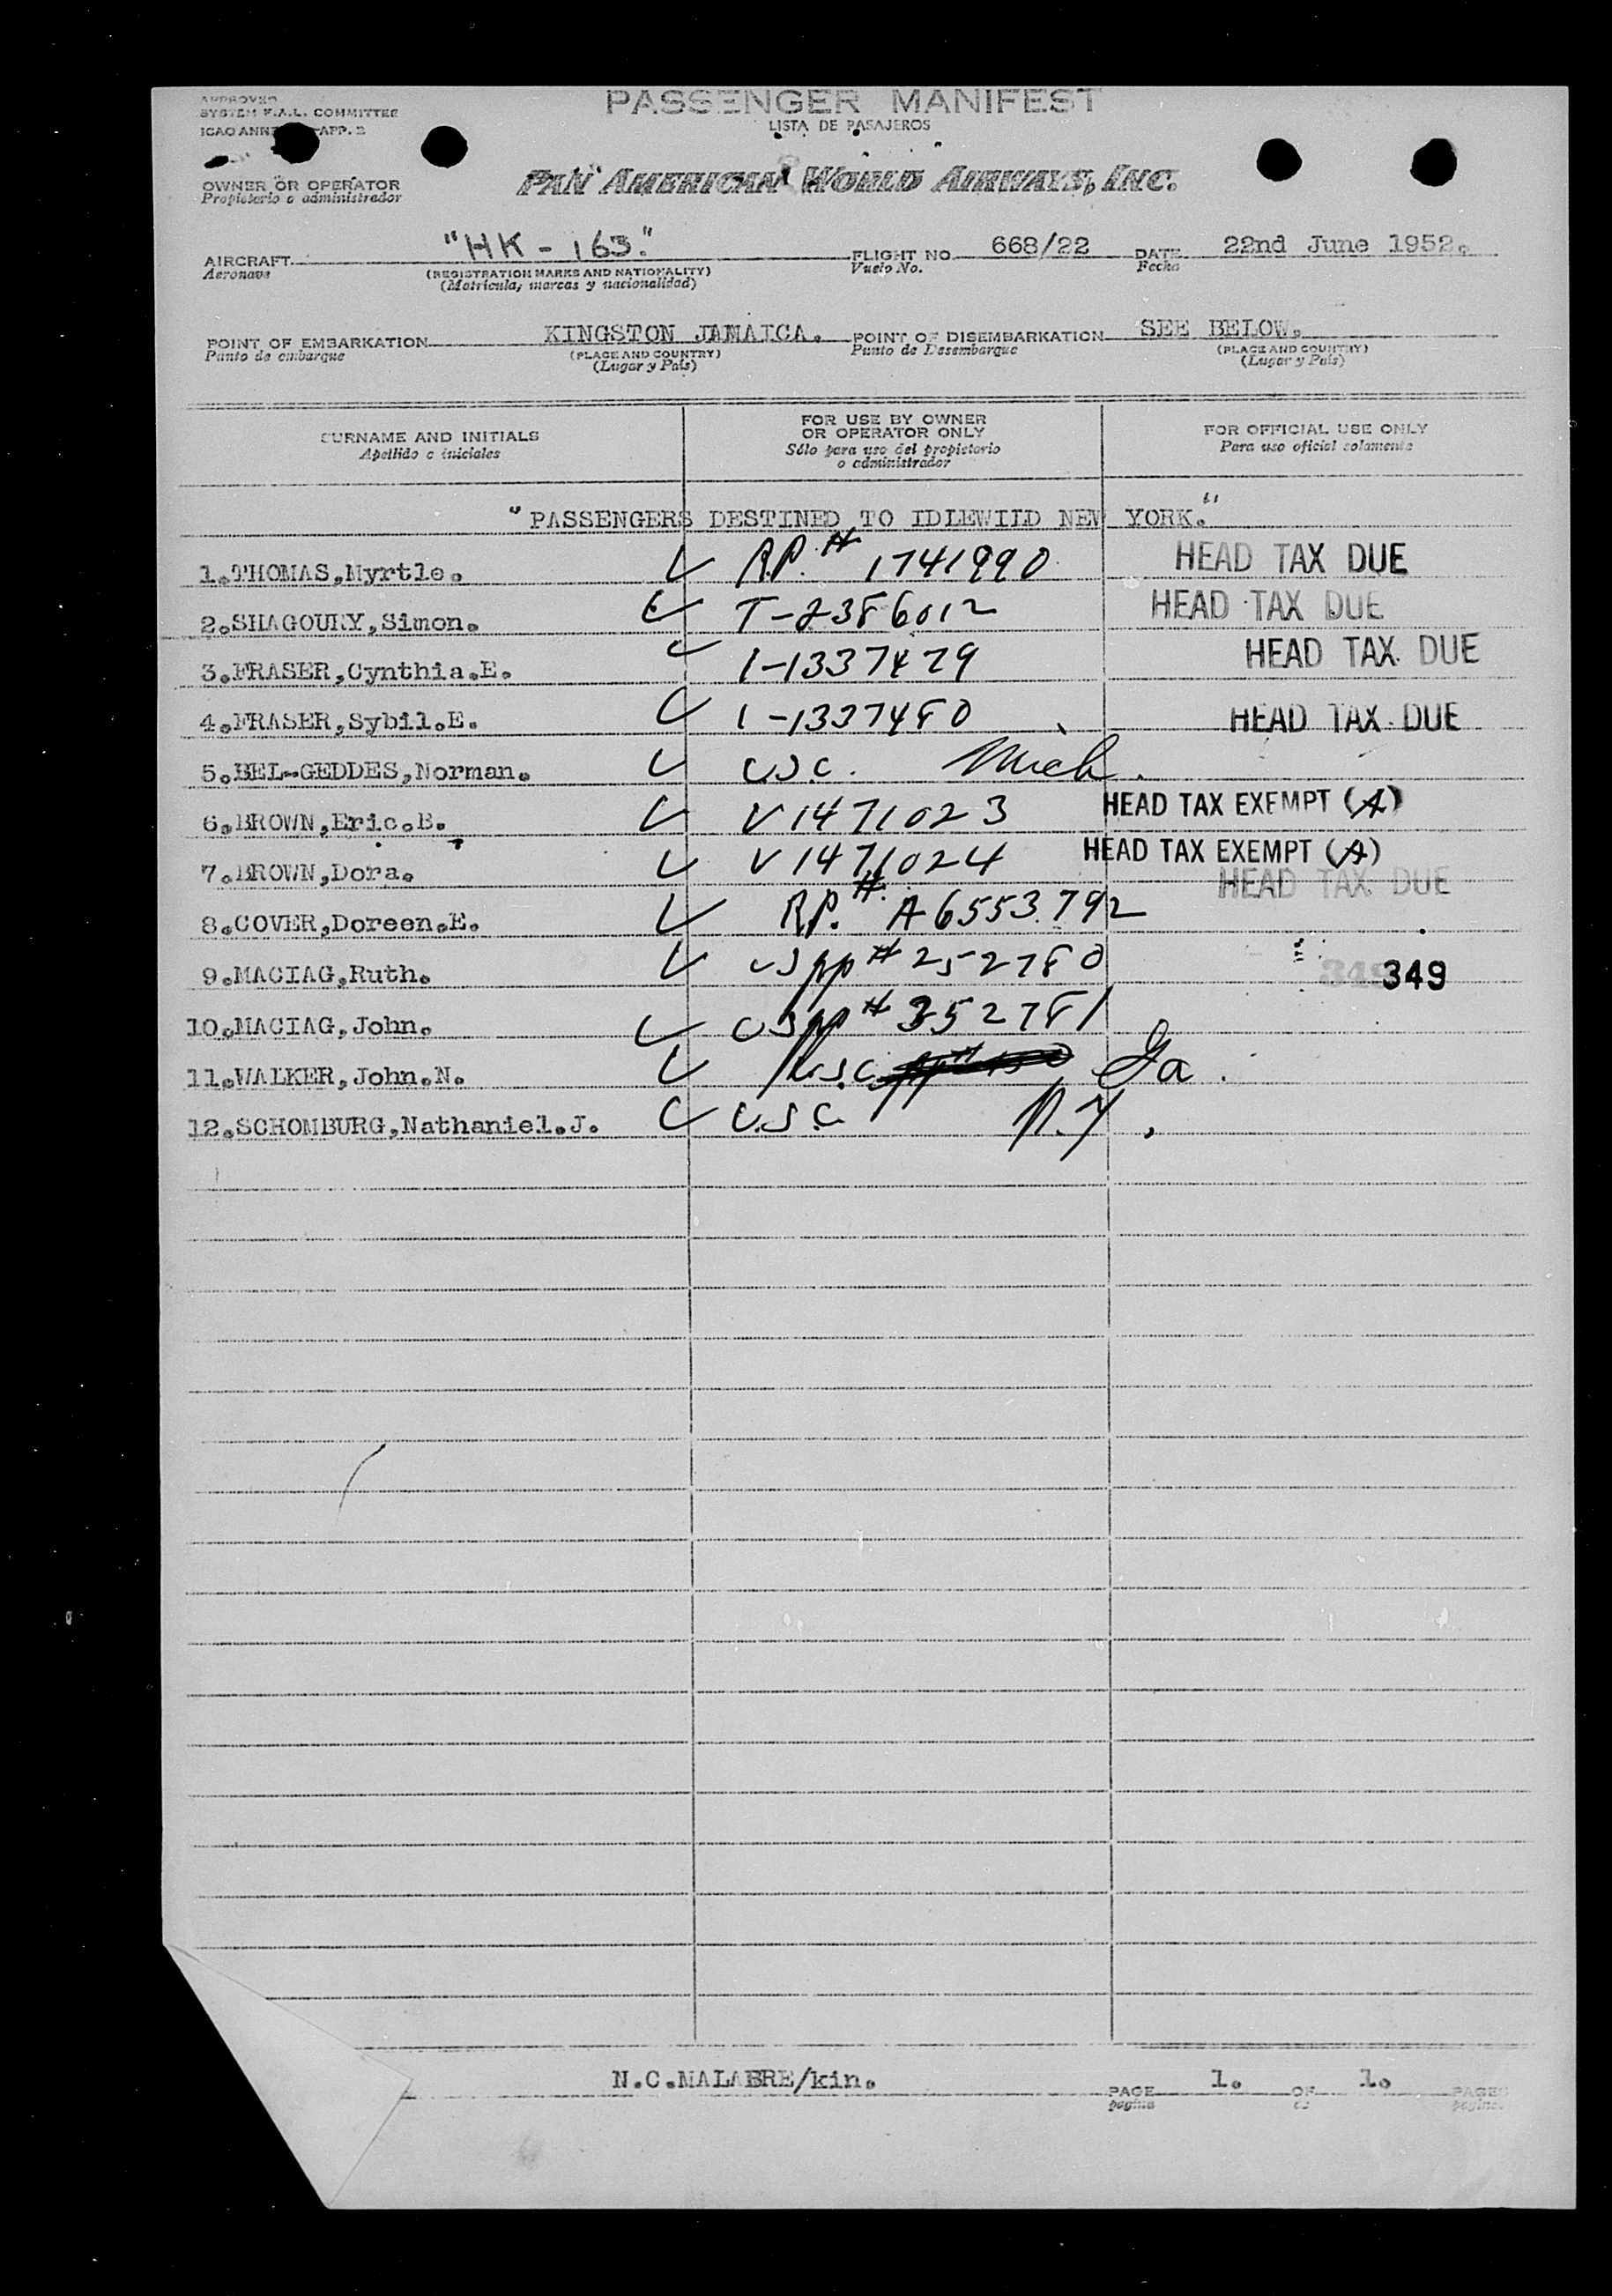 APPROVED
SYSTEM F.A.L. COMMITTEE
ICAO ANNEX APP. 2
PASSENGER MANIFEST
LISTA DE PASAJEROS
OWNER OR OPERATOR
Propietario o administrador
PAN AMERICAN WORLD AIRWAYS, INC.
AIRCRAFT "HK - 163." FLIGHT NO. 668/22 DATE 22nd June 1952.
Aeronave (REGISTRATION MARKS AND NATIONALITY) Vuelo No. Fecha
(Matricula, marcas y nacionalidad)
POINT OF EMBARKATION KINGSTON JAMAICA. POINT OF DISEMBARKATION SEE BELOW.
Punto de embarque (PLACE AND COUNTRY) Punto de Desembarque (PLACE AND COUNTRY)
(Lugar y País) (Lugar y País)
SURNAME AND INITIALS
Apellido e iniciales
FOR USE BY OWNER
OR OPERATOR ONLY
Sólo para uso del propietario
o administrador
FOR OFFICIAL USE ONLY
Para uso oficial solamente
"PASSENGERS DESTINED TO IDLEWILD NEW YORK."
1.THOMAS,Myrtle. R.P.# 1741990 HEAD TAX DUE
2.SHAGOURY,Simon. T-2386012 HEAD TAX DUE
3.FRASER,Cynthia.E. 1-1337479 HEAD TAX DUE
4.FRASER,Sybil.E. 1-1337480 HEAD TAX DUE
5.BEL-GEDDES,Norman. USC. Mich.
6.BROWN,Eric.B. V1471023 HEAD TAX EXEMPT (A)
7.BROWN,Dora. V1471024 HEAD TAX EXEMPT (A)
HEAD TAX DUE
8.COVER,Doreen.E. RP.# A6553792
9.MACIAG,Ruth. USpp# 252780 349
10.MACIAG,John. USpp# 352781
11.WALKER,John.N. USC Ga.
12.SCHOMBURG,Nathaniel.J. U.S.C N.Y.
N.C.MALABRE/kin.
PAGE 1. OF 1. PAGES
pagina de paginas